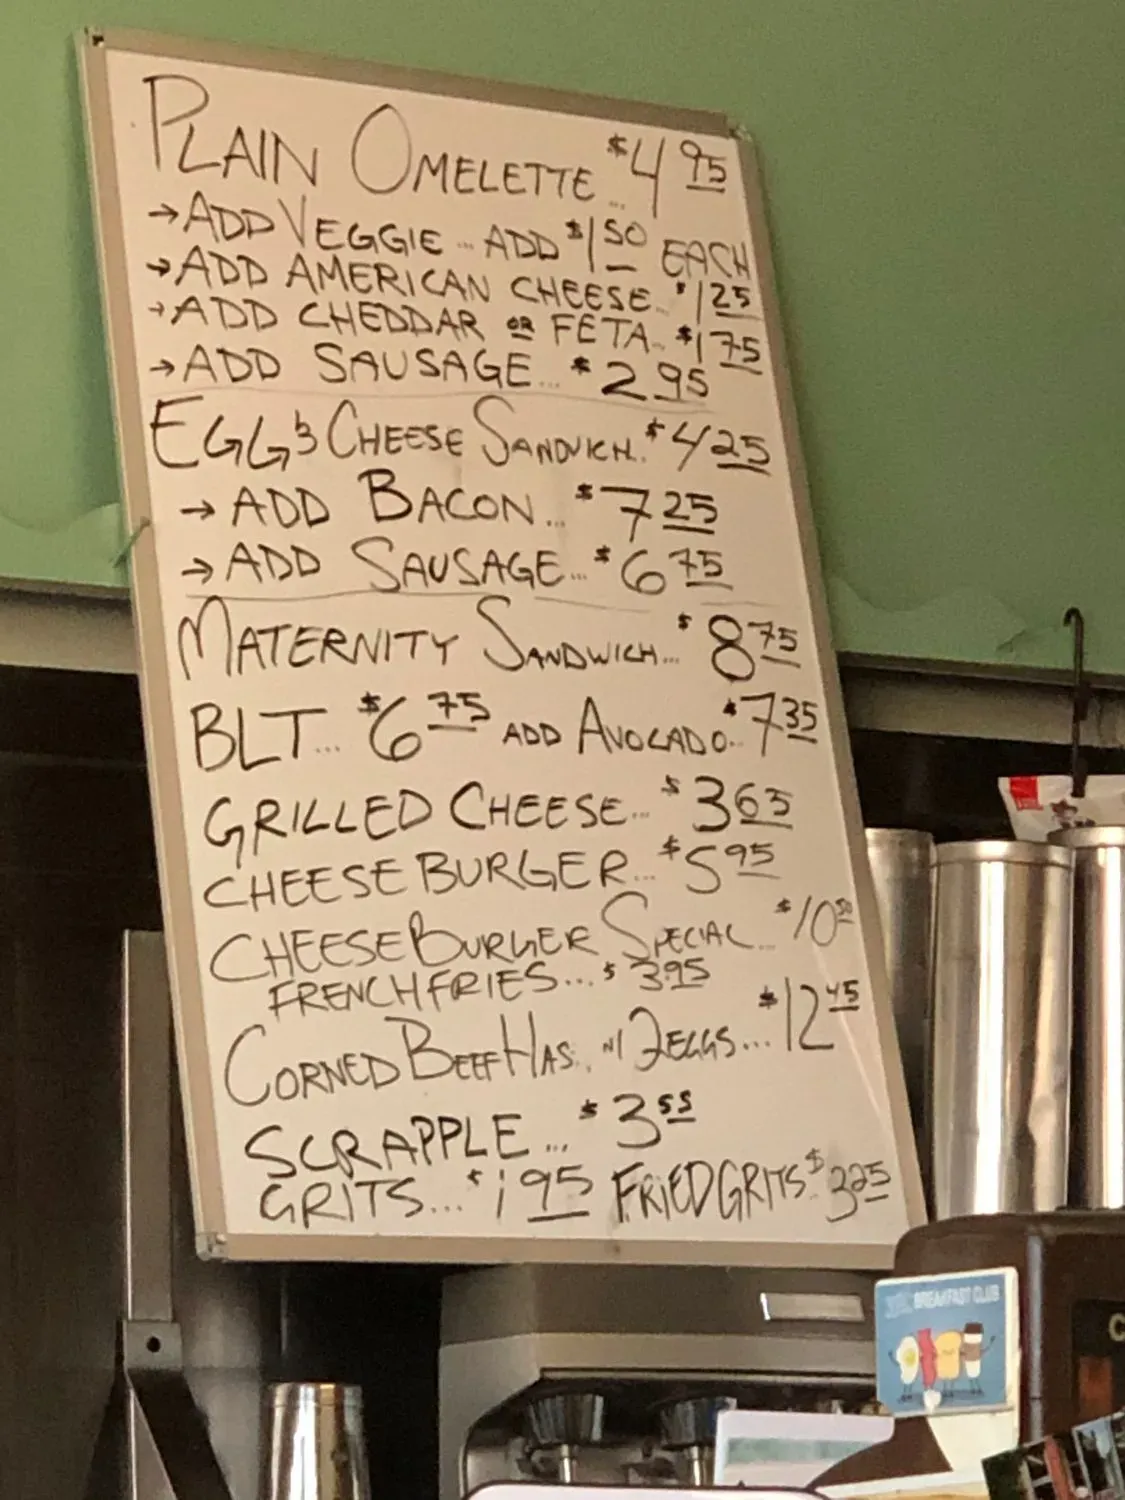 PLAIN OMELETTE... $4 95
→ ADD VEGGIE... ADD $1 50 EACH
→ ADD AMERICAN CHEESE... $1 25
→ ADD CHEDDAR OR FETA... $1 75
→ ADD SAUSAGE... $2 95
EGG & CHEESE SANDWICH. $4 25
→ ADD BACON... $7 25
→ ADD SAUSAGE... $6 75
MATERNITY SANDWICH... $8 75
BLT... $6 75 ADD AVOCADO... $7 35
GRILLED CHEESE... $3 65
CHEESE BURGER... $5 95
CHEESE BURGER SPECIAL... $10 50
FRENCH FRIES... $3.95
CORNED BEEF HAS.. W/ 2 EGGS... $12 45
SCRAPPLE... $3 55
GRITS... $1 95 FRIED GRITS.. $3 25
BREAKFAST CLUB
C